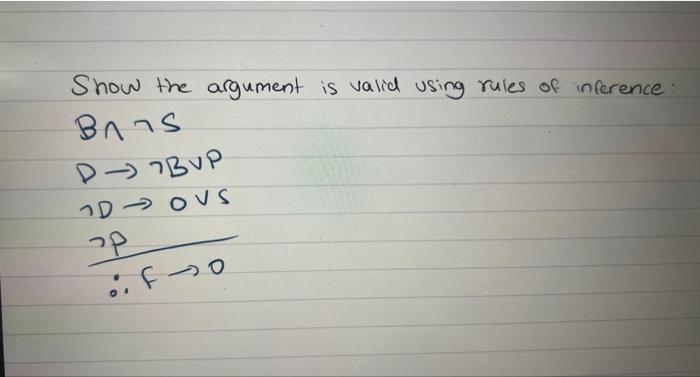 Show the argument is valid using rules of inference:
B∧¬S
D→¬B∨P
¬D→O∨S
¬P
∴F→O